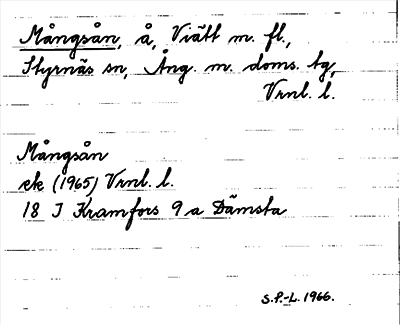 Mångsån, å, Viätt m. fl.,
Styrnäs sn, Ång. m. doms. tg,
Vrnl. l.
Mångsån
ek (1965) Vrnl. l.
18 I Kramfors 9 a Dämsta
S.P.-L. 1966.